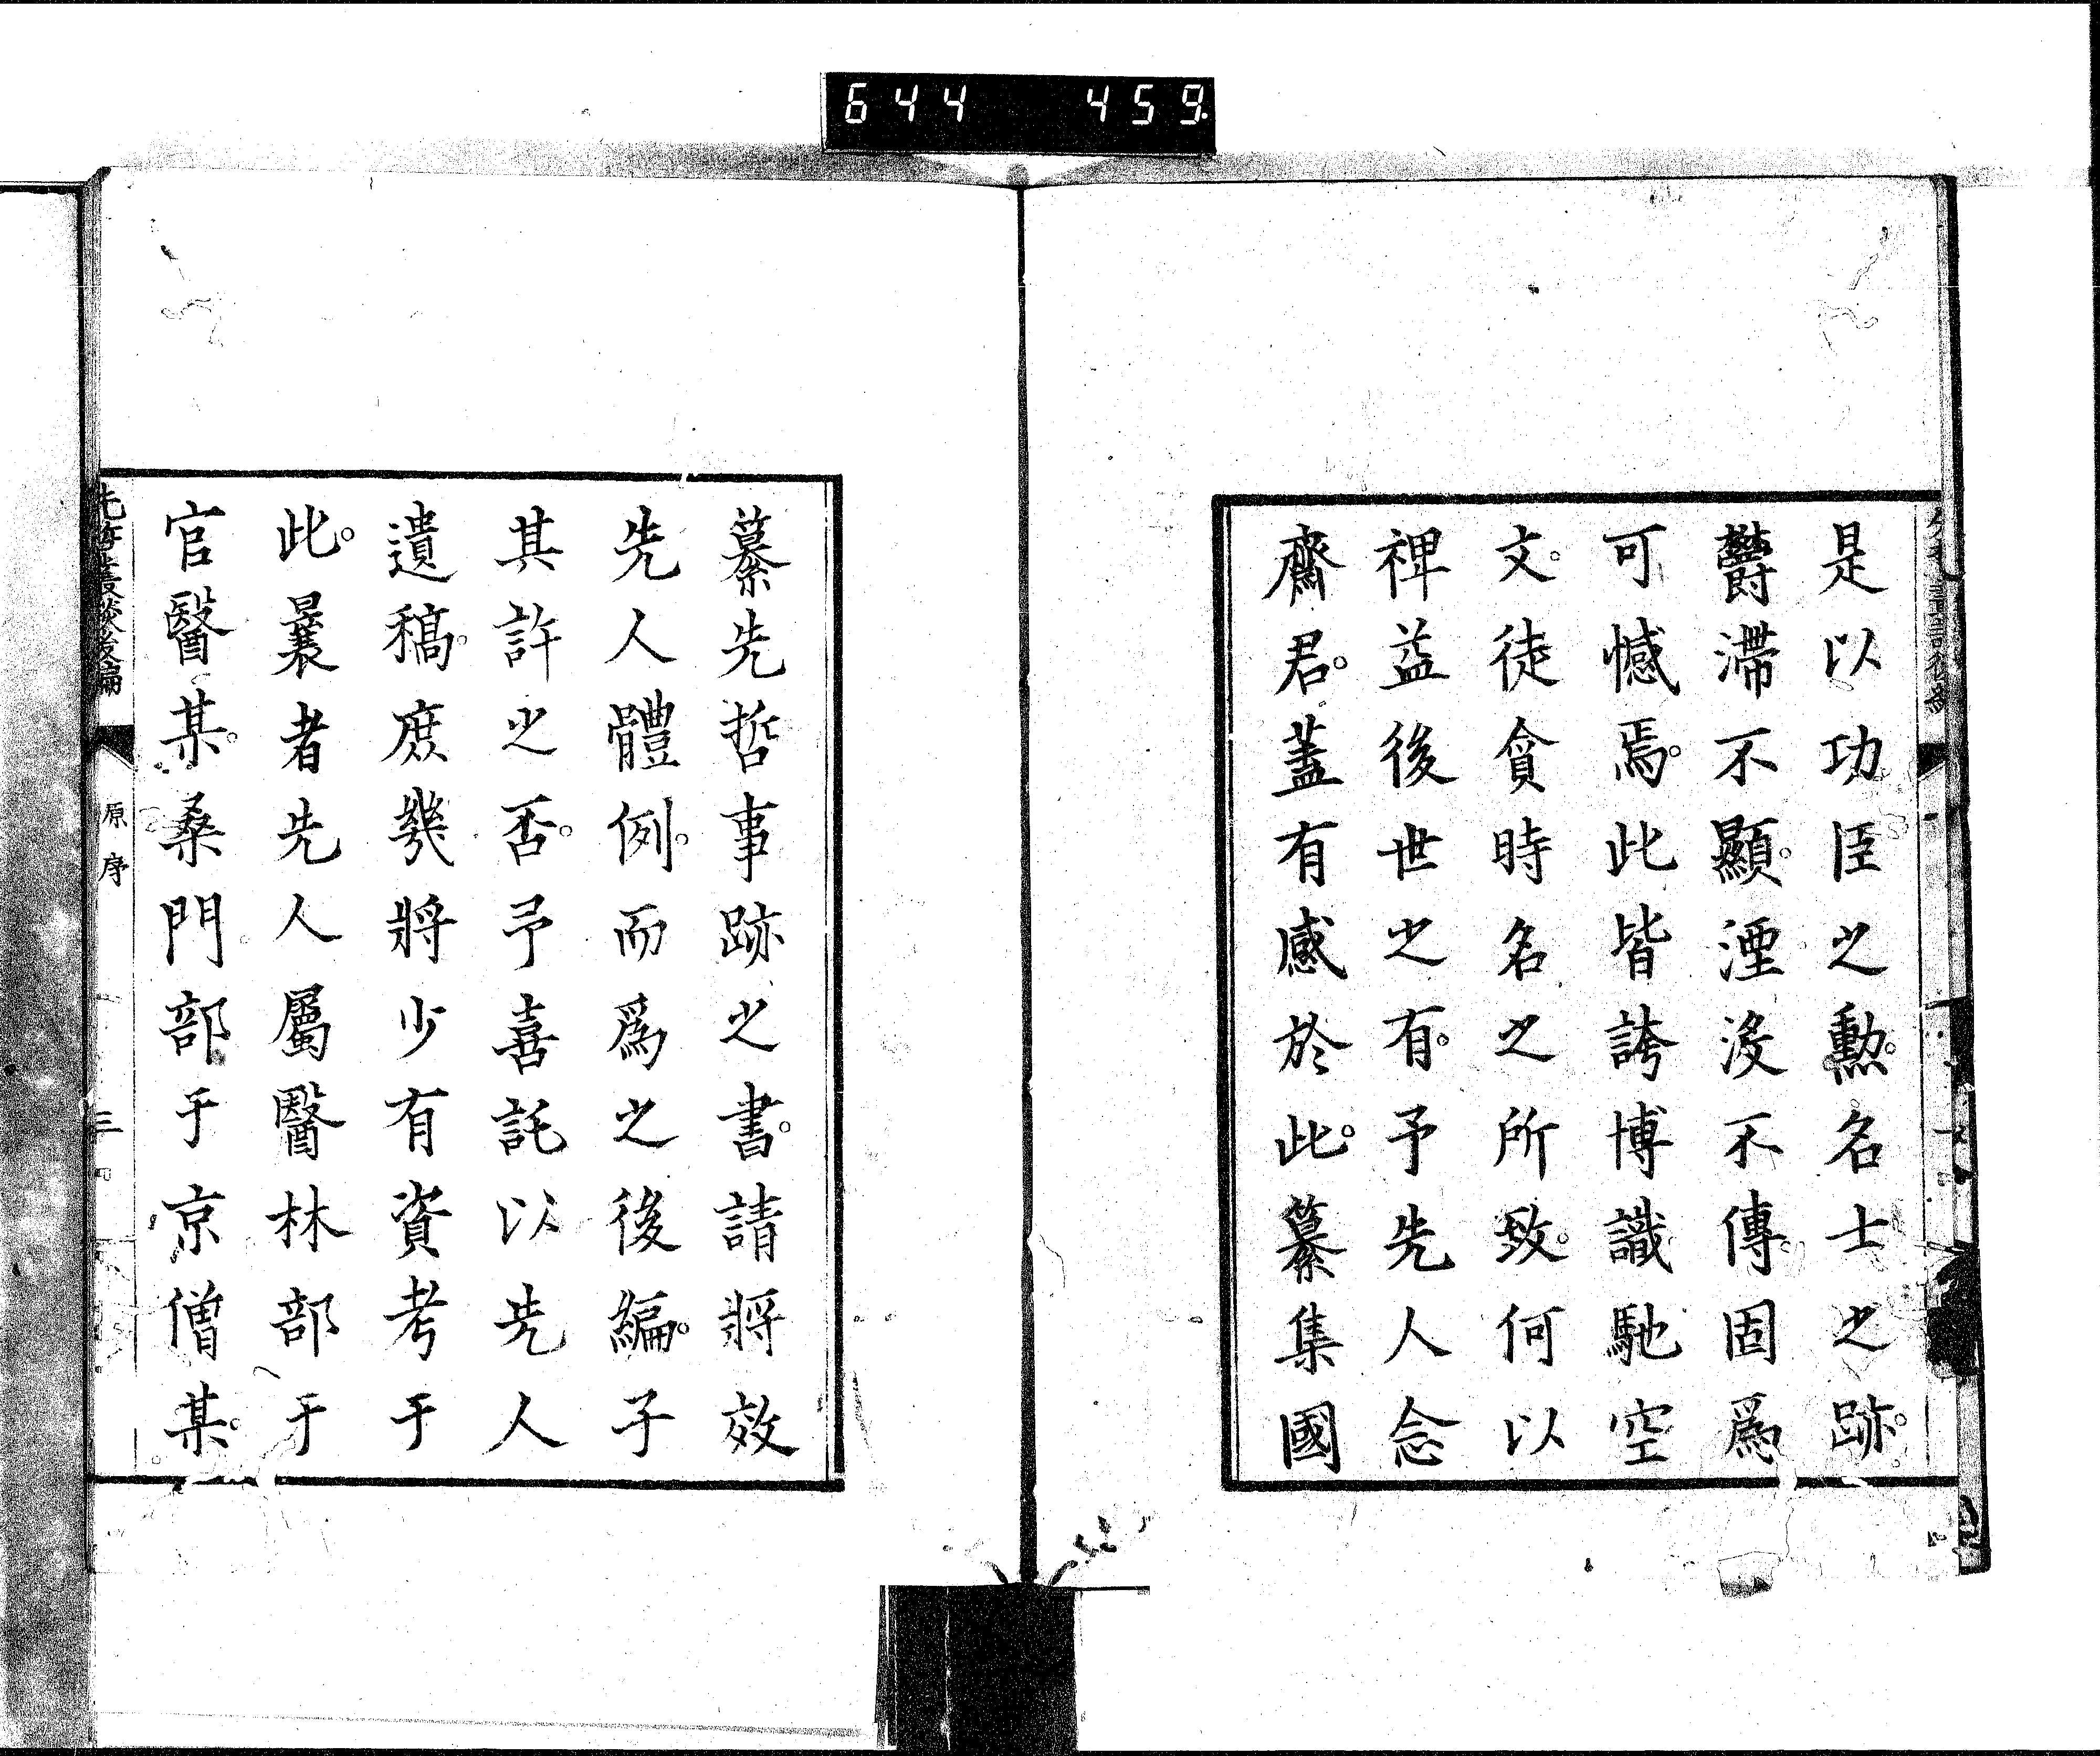 644 459
是以功臣之勳。名士之跡。
鬱滯不顯。湮沒不傳。固爲
可憾焉。此皆誇博識馳空
文。徒貪時名之所致。何以
裨益後世之有。予先人念
齋君。蓋有感於此。纂集國
纂先哲事跡之書。請將效
先人體例。而爲之後編。子
其許之否。予喜託以先人
遺稿。庶幾將少有資考于
此。曩者先人屬醫林部于
官醫某。桑門部于京僧某。
先哲叢談後編
原序
三